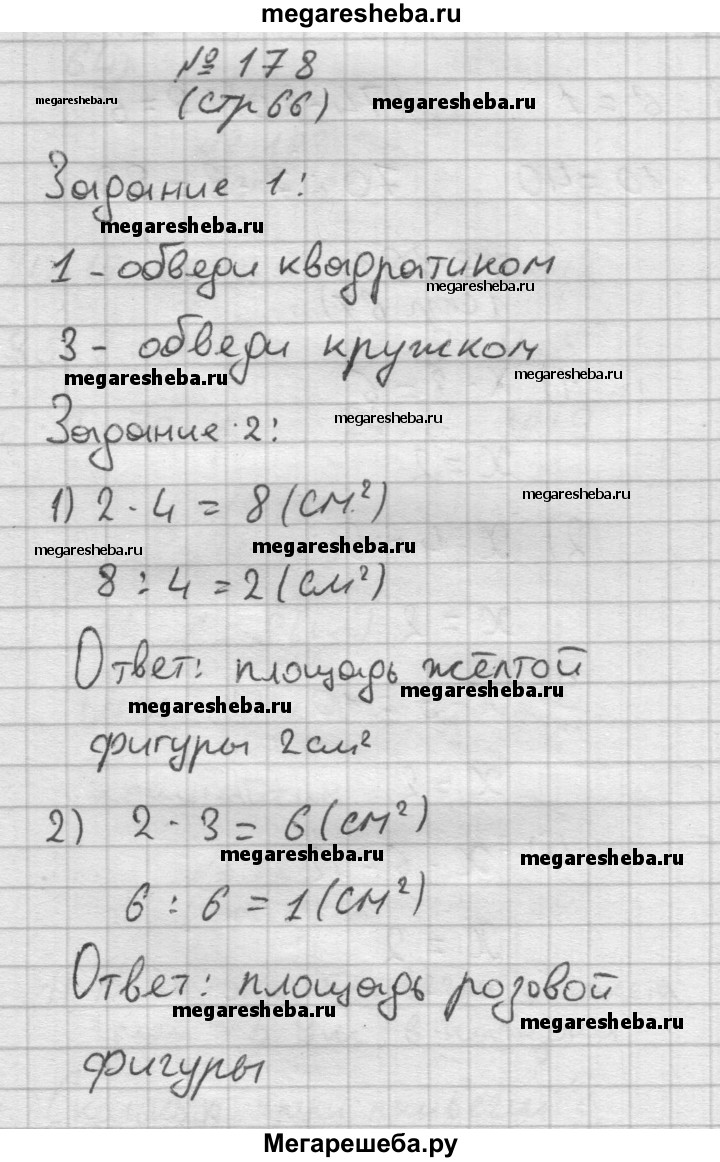 megaresheba.ru
№ 178
megaresheba.ru
(стр 66)
megaresheba.ru
Задание 1:
megaresheba.ru
1 - обведи квадратиком
megaresheba.ru
3 - обведи кружком
megaresheba.ru
megaresheba.ru
Задание 2:
megaresheba.ru
1) 2 · 4 = 8 (см²)
megaresheba.ru
megaresheba.ru
megaresheba.ru
8 : 4 = 2 (см²)
Ответ: площадь жёлтой
megaresheba.ru
megaresheba.ru
фигуры 2 см²
2) 2 · 3 = 6 (см²)
megaresheba.ru
megaresheba.ru
6 : 6 = 1 (см²)
Ответ: площадь розовой
megaresheba.ru
megaresheba.ru
фигуры
Мегарешеба.ру